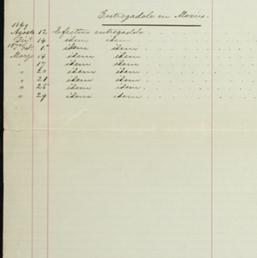 Entregadole en Mavus.
1869
Agosto 12 Efectos entregadole
14 idem idem
1870 1º idem idem
Marzo 14 idem idem
" 17 idem idem
" 20 idem idem
" 21 idem idem
" 25 idem idem
" 29 idem idem